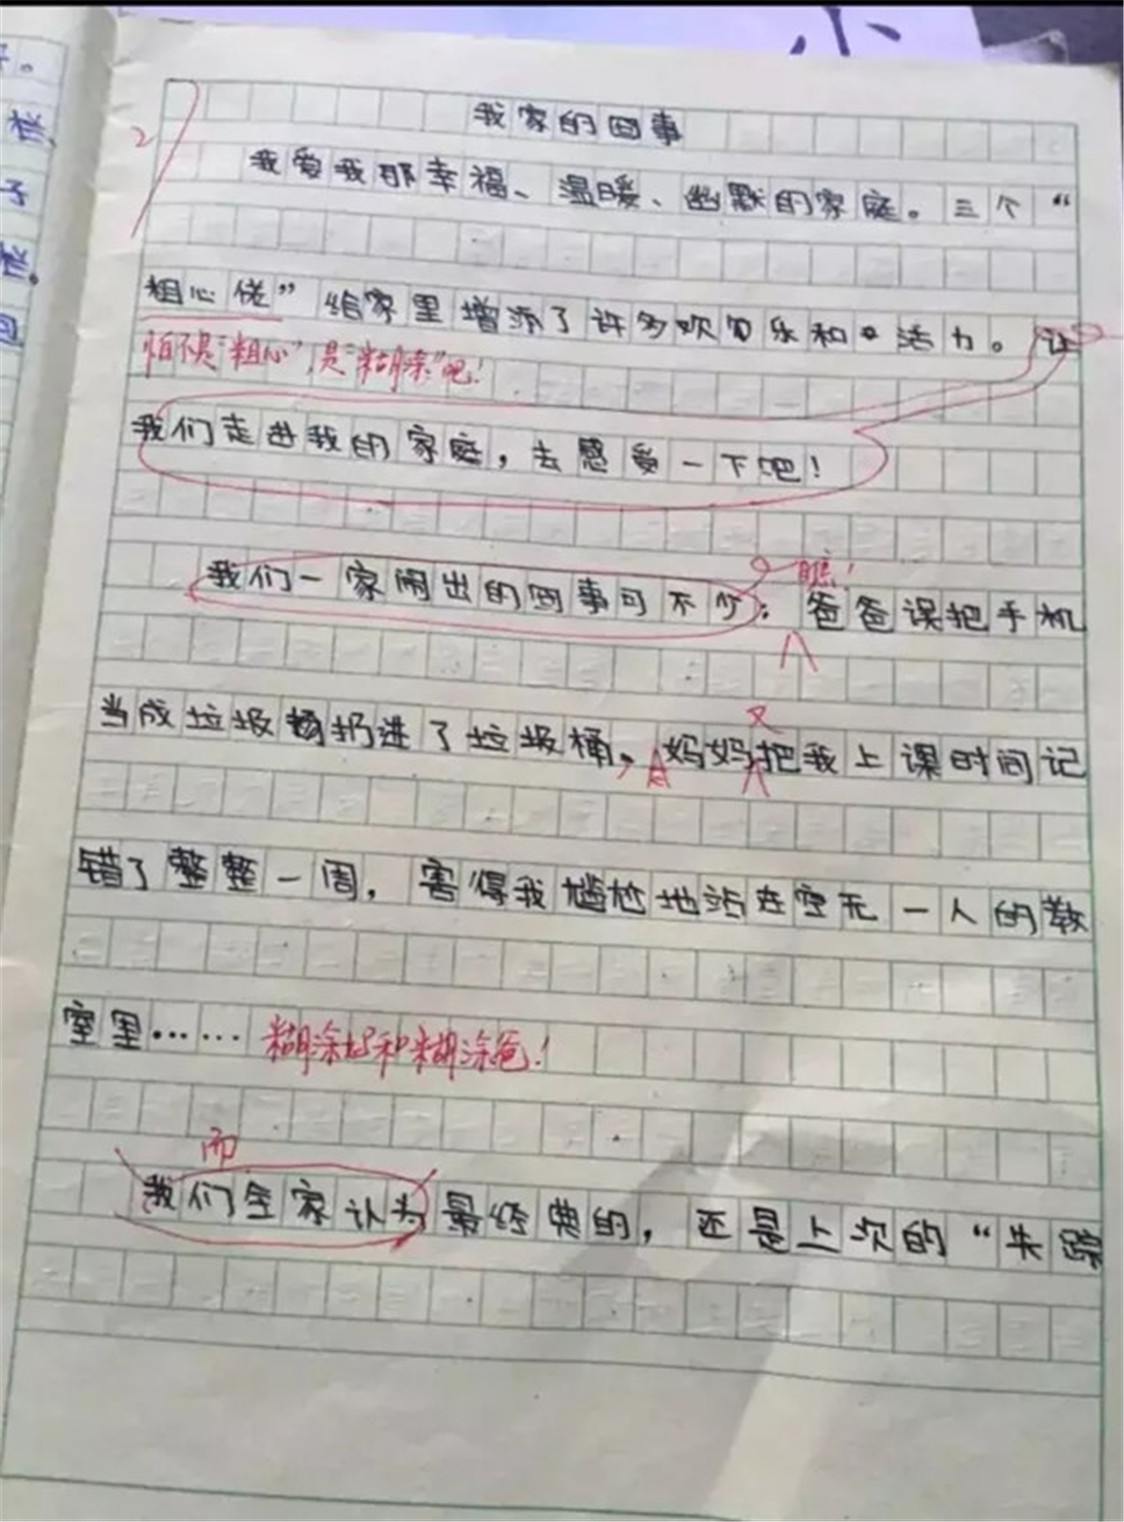 小
我家的囧事
2
我爱我那幸福、温暖、幽默的家庭。三个“
粗心佬”给家里增添了许多欢乐和活力。让
怕不是“粗心”,是“糊涂”吧!
我们走进我的家庭，去感受一下吧！
瞧!
我们一家闹出的囧事可不少：爸爸误把手机
又
当成垃圾扔进了垃圾桶，妈妈把我上课时间记
错了整整一周，害得我尴尬地站在空无一人的教
室里…… 糊涂妈和糊涂爸!
而
我们全家认为最经典的，还是上次的“失踪